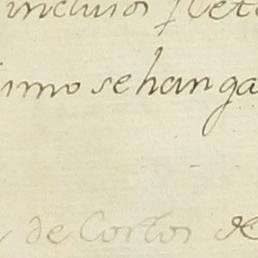 incluios flete
imo se han ga
de Cortos de